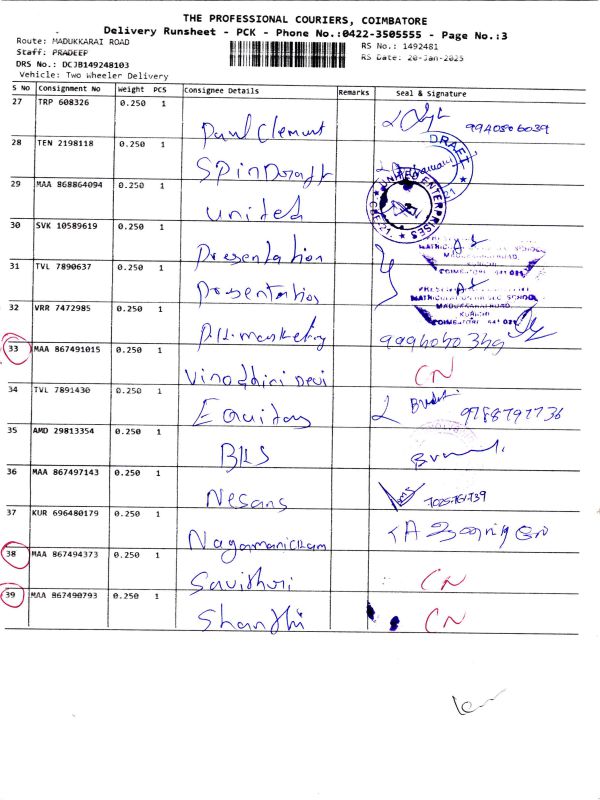 THE PROFESSIONAL COURIERS, COIMBATORE
Delivery Runsheet - PCK - Phone No.:0422-3505555 - Page No.:3
Route: MADUKKARAI ROAD
RS No.: 1492481
Staff: PRADEEP
RS Date: 20-Jan-2025
DRS No.: DCJB149248103
Vehicle: Two Wheeler Delivery
S No Consignment No Weight PCS Consignee Details Remarks Seal & Signature
27 TRP 608326 0.250 1
Paul Clement 9940806039
28 TEN 2198118 0.250 1
DRAFT
SpinDraft
29 MAA 868864094 0.250 1
UNITED ENTERPRISES
CBE-21.
United
30 SVK 10589619 0.250 1
Presentation
MATRIC SCHOOL
MADUKKARAI ROAD
KURICHI
COIMBATORE 641 021
31 TVL 7890637 0.250 1
Presentation
MATRICULATION HR SEC SCHOOL
MADUKKARAI ROAD,
KURICHI
COIMBATORE 641 021
32 VRR 7472985 0.250 1
P.K. marketing
33 MAA 867491015 0.250 1
Devi CN
34 TVL 7891430 0.250 1
Equitas 9788797736
35 AMD 29813354 0.250 1
BKS
36 MAA 867497143 0.250 1
Nesans
37 KUR 696480179 0.250 1
Nagamanickam
38 MAA 867494373 0.250 1
Savithiri CN
39 MAA 867490793 0.250 1
Shanthi CN